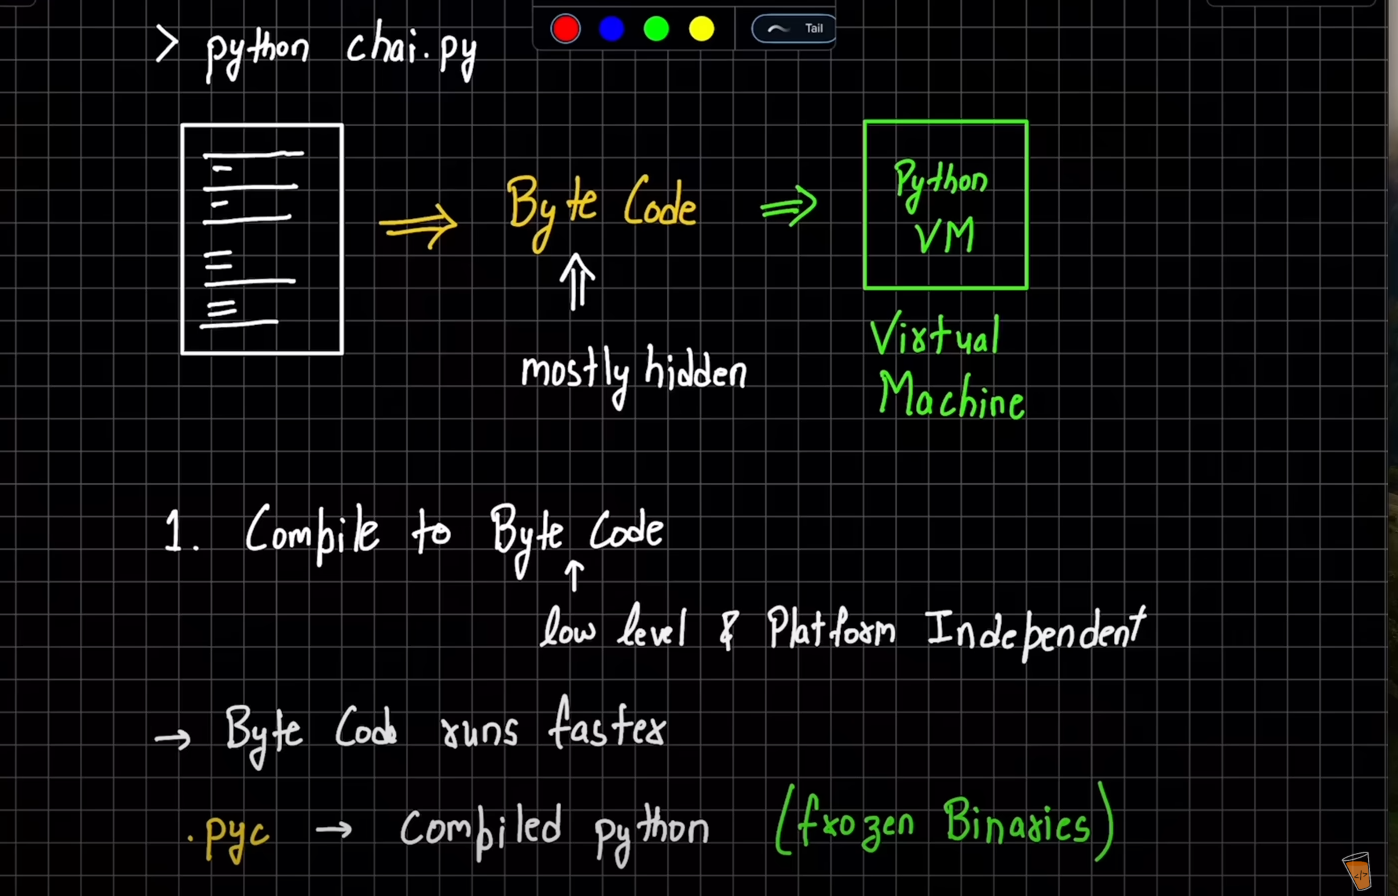 > python chai.py
Tail
Byte Code
Python
VM
mostly hidden
Virtual
Machine
1. Compile to Byte Code
low level & Platform Independent
→ Byte Code runs faster
.pyc → Compiled python (frozen Binaries)
</>